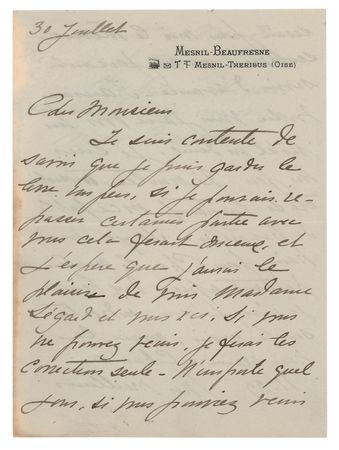 30 Juillet
MESNIL-BEAUFRESNE
MESNIL-THERIBUS (OISE)
Cher Monsieur
Je suis contente de
savoir que je puis garder le
livre un peu, si je pouvais re-
passer certaines partie avec
vous cela ferait mieux, et
j'espère que j'aurai le
plaisir de voir Madame
Ségard et vous ici, si vous
ne pouvez venir, je ferai les
correction seule - N'importe quel
jour, si vous pouviez venir